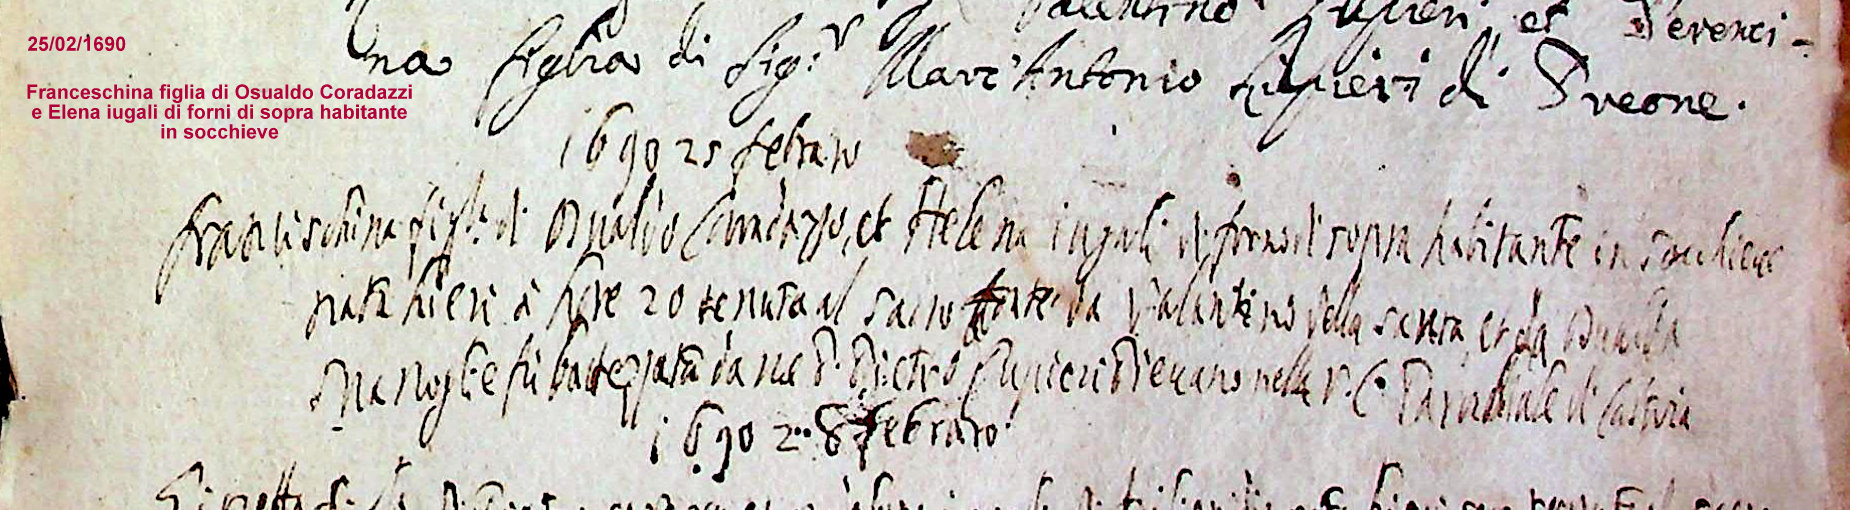 25/02/1690
Franceschina figlia di Osualdo Coradazzi
e Elena iugali di forni di sopra habitante
in socchieve
Valentino Lupieri, et Perenci-
na figlia di Sig.r Marc'Antonio Lupieri di Preone.
1690 25 febraro
Francischina figl.a di Osualdo Coradazzo, et Helena iugali di forno di sopra habitante in Socchieve
nata hieri à hore 20 tenuta al sacro fonte da Valantino della santa, et da
sua moglie fù battezzata da me P. Pietro Lupieri Pievano nella V. C. Parochiale di Castoia
1690 28 Febraro